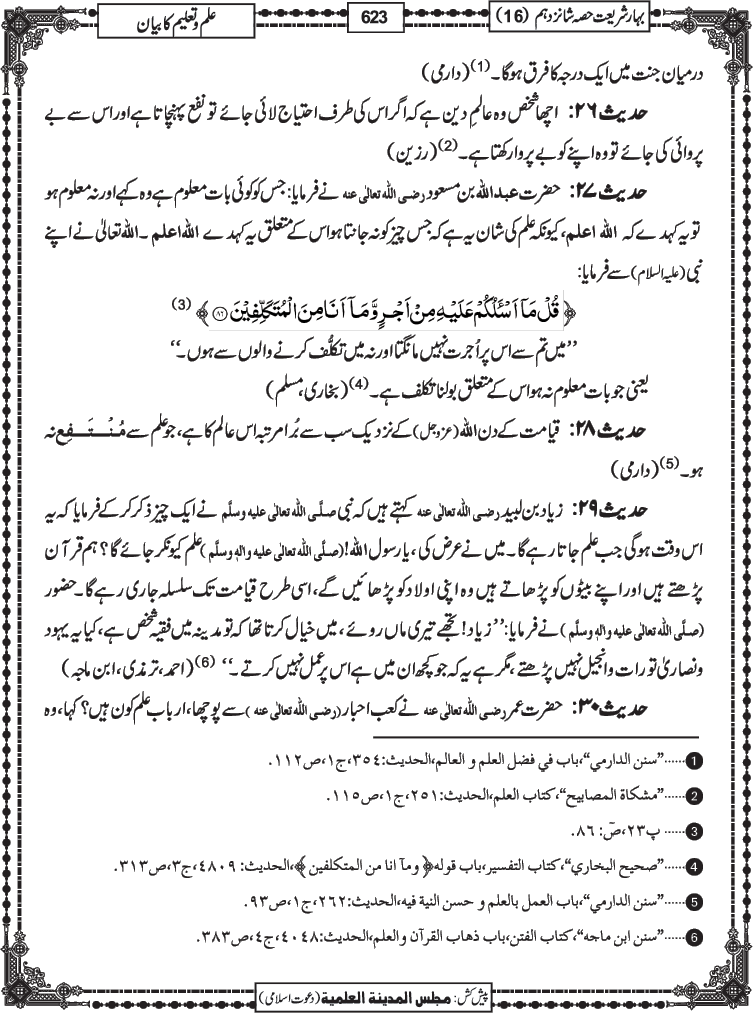 بہارِ شریعت حصہ شانزدہم (16)
623
علم و تعلیم کا بیان
درمیان جنت میں ایک درجہ کا فرق ہوگا۔(1) (دارمی)
حدیث ۲۶: اچھا شخص وہ عالمِ دین ہے کہ اگر اس کی طرف احتیاج لائی جائے تو نفع پہنچاتا ہے اور اس سے بے
پروائی کی جائے تو وہ اپنے کو بے پروا رکھتا ہے۔(2) (رزین)
حدیث ۲۷: حضرت عبداللہ بن مسعود رضی اللہ تعالٰی عنہ نے فرمایا: جس کو کوئی بات معلوم ہے وہ کہے اور نہ معلوم ہو
تو یہ کہدے کہ اللہ اعلم، کیونکہ علم کی شان یہ ہے کہ جس چیز کو نہ جانتا ہو اس کے متعلق یہ کہدے اللہ اعلم ۔ اللہ تعالیٰ نے اپنے
نبی (علیہ السلام) سے فرمایا:
﴿ قُلْ مَاۤ اَسْـَٔلُكُمْ عَلَیْهِ مِنْ اَجْرٍ وَّ مَاۤ اَنَا مِنَ الْمُتَكَلِّفِیْنَ ﴿۸۶﴾ ﴾ (3)
’’میں تم سے اس پر اُجرت نہیں مانگتا اور نہ میں تکلُّف کرنے والوں سے ہوں۔‘‘
یعنی جو بات معلوم نہ ہو اس کے متعلق بولنا تکلف ہے۔(4) (بخاری، مسلم)
حدیث ۲۸: قیامت کے دن اللہ (عزوجل) کے نزدیک سب سے بُرا مرتبہ اس عالم کا ہے، جو علم سے مُنْتَفِع نہ
ہو۔(5) (دارمی)
حدیث ۲۹: زیاد بن لبید رضی اللہ تعالٰی عنہ کہتے ہیں کہ نبی صلَّی اللہ تعالٰی علیہ وسلَّم نے ایک چیز ذکر کرکے فرمایا کہ یہ
اس وقت ہوگی جب علم جاتا رہے گا۔ میں نے عرض کی، یارسول اللہ! (صلَّی اللہ تعالٰی علیہ واٰلہٖ وسلَّم) علم کیونکر جائے گا؟ ہم قرآن
پڑھتے ہیں اور اپنے بیٹوں کو پڑھاتے ہیں وہ اپنی اولاد کو پڑھائیں گے، اسی طرح قیامت تک سلسلہ جاری رہے گا۔ حضور
(صلَّی اللہ تعالٰی علیہ واٰلہٖ وسلَّم) نے فرمایا: ’’زیاد! تجھے تیری ماں روئے، میں خیال کرتا تھا کہ تو مدینہ میں فقیہ شخص ہے، کیا یہ یہود
و نصاریٰ تورات و انجیل نہیں پڑھتے، مگر ہے یہ کہ جو کچھ ان میں ہے اس پر عمل نہیں کرتے۔‘‘ (6) (احمد، ترمذی، ابن ماجہ)
حدیث ۳۰: حضرت عمر رضی اللہ تعالٰی عنہ نے کعب احبار (رضی اللہ تعالٰی عنہ) سے پوچھا، ارباب علم کون ہیں؟ کہا، وہ
1 ......”سنن الدارمي“، باب في فضل العلم و العالم، الحديث: ٣٥٤، ج١، ص١١٢.
2 ......”مشكاة المصابيح“، كتاب العلم، الحديث: ٢٥١، ج١، ص١١٥.
3 ...... پ٢٣، صٓ: ٨٦.
4 ......”صحيح البخاري“، كتاب التفسير، باب قوله ﴿ ومآ انا من المتكلفين ﴾، الحديث: ٤٨٠٩، ج٣، ص٣١٣.
5 ......”سنن الدارمي“، باب العمل بالعلم و حسن النية فيه، الحديث: ٢٦٢، ج١، ص٩٣.
6 ......”سنن ابن ماجه“، كتاب الفتن، باب ذهاب القرآن والعلم، الحديث: ٤٠٤٨، ج٤، ص٣٨٣.
پیش کش: مجلس المدینة العلمیة (دعوت اسلامی)